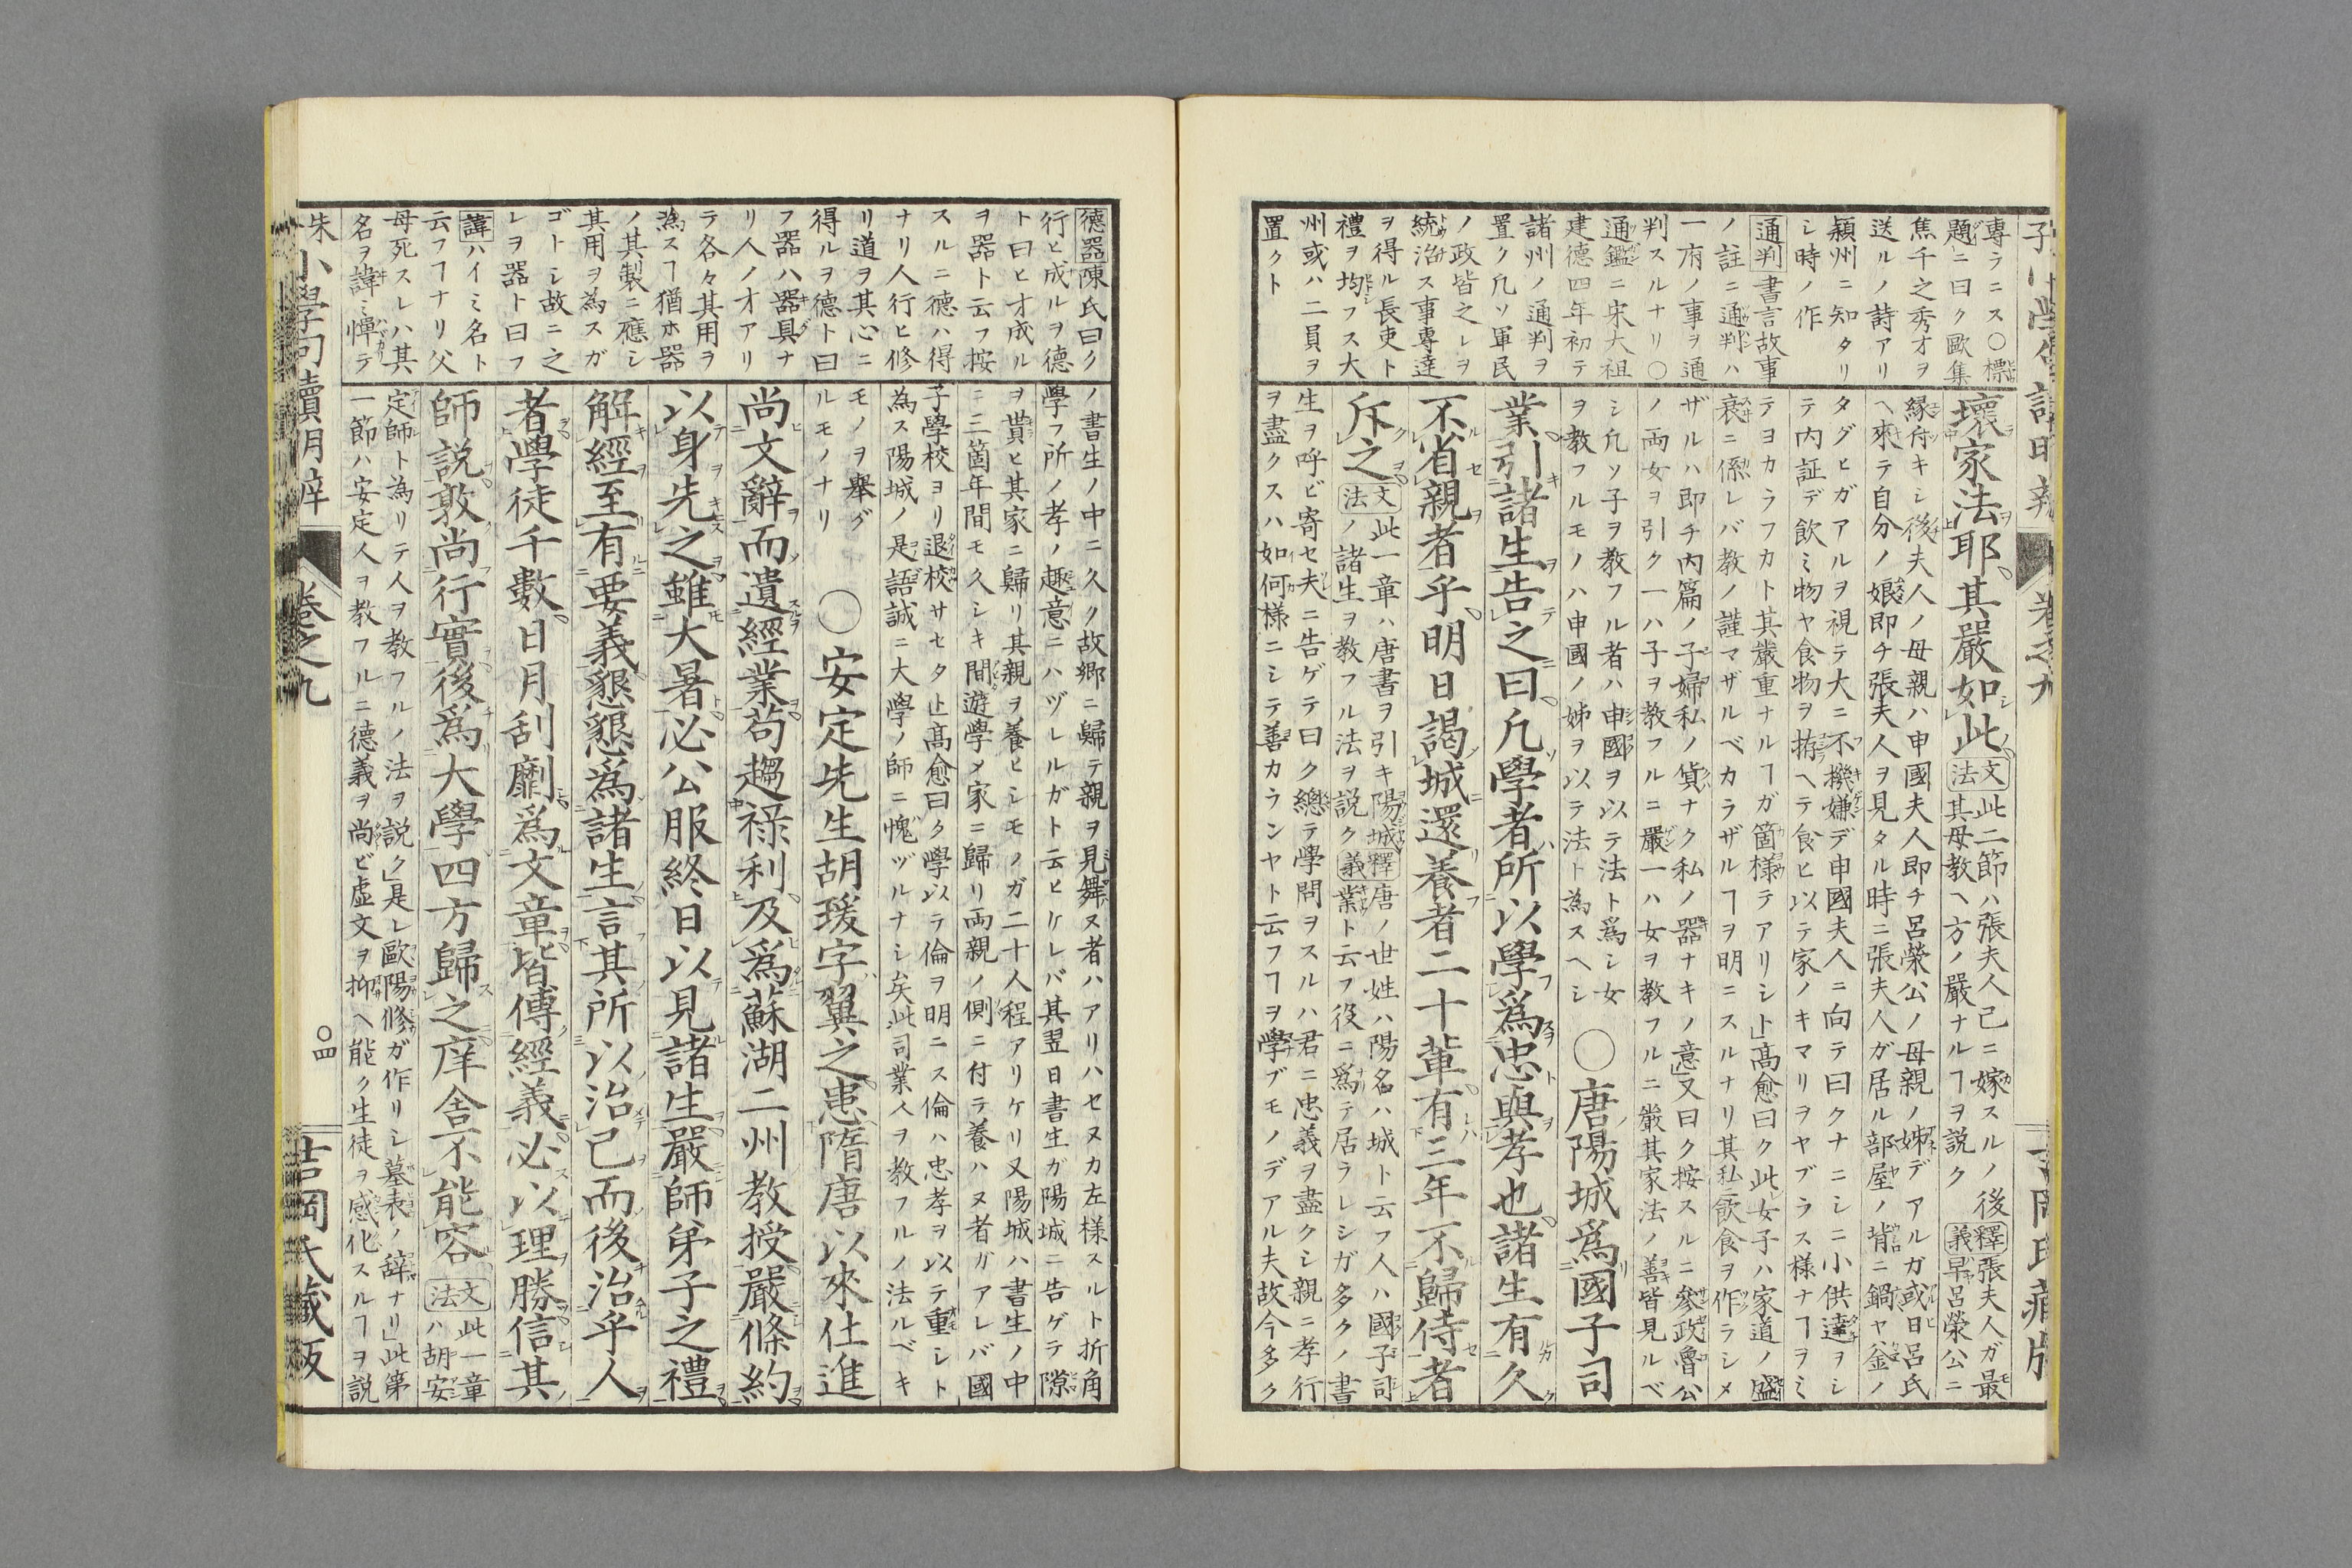 專ラニス〇標
題ニ曰ク歐集
焦千之秀才ヲ
送ルノ詩アリ
潁州ニ知タリ
シ時ノ作
通判書言故事
ノ註ニ通判ハ
一府ノ事ヲ通
判スルナリ〇
通鑑ニ宋大祖
建德四年初テ
諸州ノ通判ヲ
置ク凡ソ軍民
ノ政皆之レヲ
統治ス事專達
ヲ得ル長吏ト
禮ヲ均フス大
州或ハ二員ヲ
置クト
壞家法耶其嚴如此文法此二節ハ張夫人己ニ嫁スルノ後
其母教ヘ方ノ嚴ナルヿヲ説ク釋義張夫人ガ最早呂榮公ニ
縁付キシ後夫人ノ母親ハ申國夫人即チ呂榮公ノ母親ノ姊デアルガ或日呂氏
ヘ來テ自分ノ娘即チ張夫人ヲ見タル時ニ張夫人ガ居ル部屋ノ背ニ鍋ヤ釜ノ
タグヒガアルヲ視テ大ニ不機嫌デ申國夫人ニ向テ曰クナニシニ小供達ヲシ
テ内証デ飲ミ物ヤ食物ヲ拵ヘテ食ヒ以テ家ノキマリヲヤブラス様ナヿヲミ
テヨカラフカト其嚴重ナルヿガ箇樣テアリシト」高愈曰ク此女子ハ家道ノ盛
衰ニ係レバ教ノ謹マザルベカラザルヿヲ明ニスルナリ其私飲食ヲ作ラシメ
ザルハ即チ内篇ノ子婦私ノ貨ナク私ノ器ナキノ意」又曰ク按スルニ參政魯公
ノ両女ヲ引ク一ハ子ヲ教フルニ嚴一ハ女ヲ教フルニ嚴其家法ノ善皆見ルベ
シ凡ソ子ヲ教フル者ハ申國ヲ以テ法ト為シ女
ヲ教フルモノハ申國ノ姊ヲ以テ法ト為スヘシ
〇唐陽城爲國子司
業引諸生告之曰凡學者所以學爲忠與孝也諸生有久
不省親者乎明日謁城還養者二十輩有三年不歸侍者
斥之文法此一章ハ唐書ヲ引キ陽城釋義唐ノ世姓ハ陽名ハ城ト云フ人ハ國子司
ノ諸生ヲ教フル法ヲ説ク業ト云フ役ニ爲テ居ラレシガ多クノ書
生ヲ呼ビ寄セ夫ニ告ゲテ曰ク總テ學問ヲスルハ君ニ忠義ヲ盡クシ親ニ孝行
ヲ盡クスハ如何樣ニシテ善カランヤト云フヿヲ學ブモノデアル夫故今多ク
德器陳氏曰ク
行ヒ成ルヲ德
ト曰ヒ才成ル
ヲ器ト云フ按
スルニ德ハ得
ナリ人行ヒ修
リ道ヲ其心ニ
得ルヲ德ト曰
フ器ハ器具ナ
リ人ノ才アリ
ラ各々其用ヲ
為スヿ猶ホ器
ノ其製ニ應シ
其用ヲ為スガ
ゴトシ故ニ之
レヲ器ト曰フ
諱ハイミ名ト
云フヿナリ父
母死スレハ其
名ヲ諱ミ憚テ
ノ書生ノ中ニ久ク故郷ニ歸テ親ヲ見舞ヌ者ハアリハセヌカ左樣スルト折角
學フ所ノ孝ノ趣意ニハヅレルガト云ヒケレバ其翌日書生ガ陽城ニ告ゲテ隙
ヲ貰ヒ其家ニ歸リ其親ヲ養ヒシモノガ二十人程アリケリ又陽城ハ書生ノ中
ニ三箇年間モ久シキ間遊學メ家ニ歸リ両親ノ側ニ付テ養ハヌ者ガアレバ國
子學校ヨリ退校サセタ」高愈曰ク學以テ倫ヲ明ニス倫ハ忠孝ヲ以テ重シト
為ス陽城ノ是語誠ニ大學ノ師ニ愧ヅルナシ矣此司業人ヲ教フルノ法ルベキ
モノヲ舉グ
ルモノナリ
〇安定先生胡瑗字翼之患隋唐以來仕進
尚文辭而遺經業苟趨祿利及爲蘇湖二州教授嚴條約
以身先之雖大暑必公服終日以見諸生嚴師弟子之禮
解經至有要義懇懇爲諸生言其所以治己而後治乎人
者學徒千數日月刮劘爲文章皆傅經義必以理勝信其
師説敦尚行實後爲大學四方歸之庠舎不能容文法此一章
ハ胡安
定師ト為リテ人ヲ教フルノ法ヲ説ク」是レ歐陽修ガ作リシ墓表ノ辭ナリ」此第
一節ハ安定人ヲ教フルニ德義ヲ尚ビ虛文ヲ抑ヘ能ク生徒ヲ感化スルヿヲ説
小學句讀明辨
卷之九
〇四
吉岡氏藏版